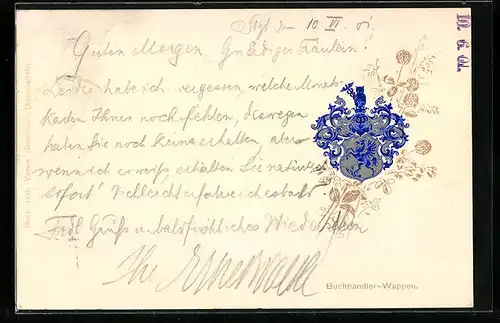 Stgt. den 10 VI. 01.
10. 6. 01.
Guten Morgen Gnädiges Fräulein!
Leider habe ich vergessen welche Monats-
karten Ihnen noch fehlen, deswegen
haben Sie noch keine erhalten, aber
wenn ich es weiss erhalten Sie natürlich
sofort! Vielleicht erfahre ich es bald!
Frdl Gruss u. baldfröhliches Wiedersehen
Ihr
Buchhändler-Wappen.